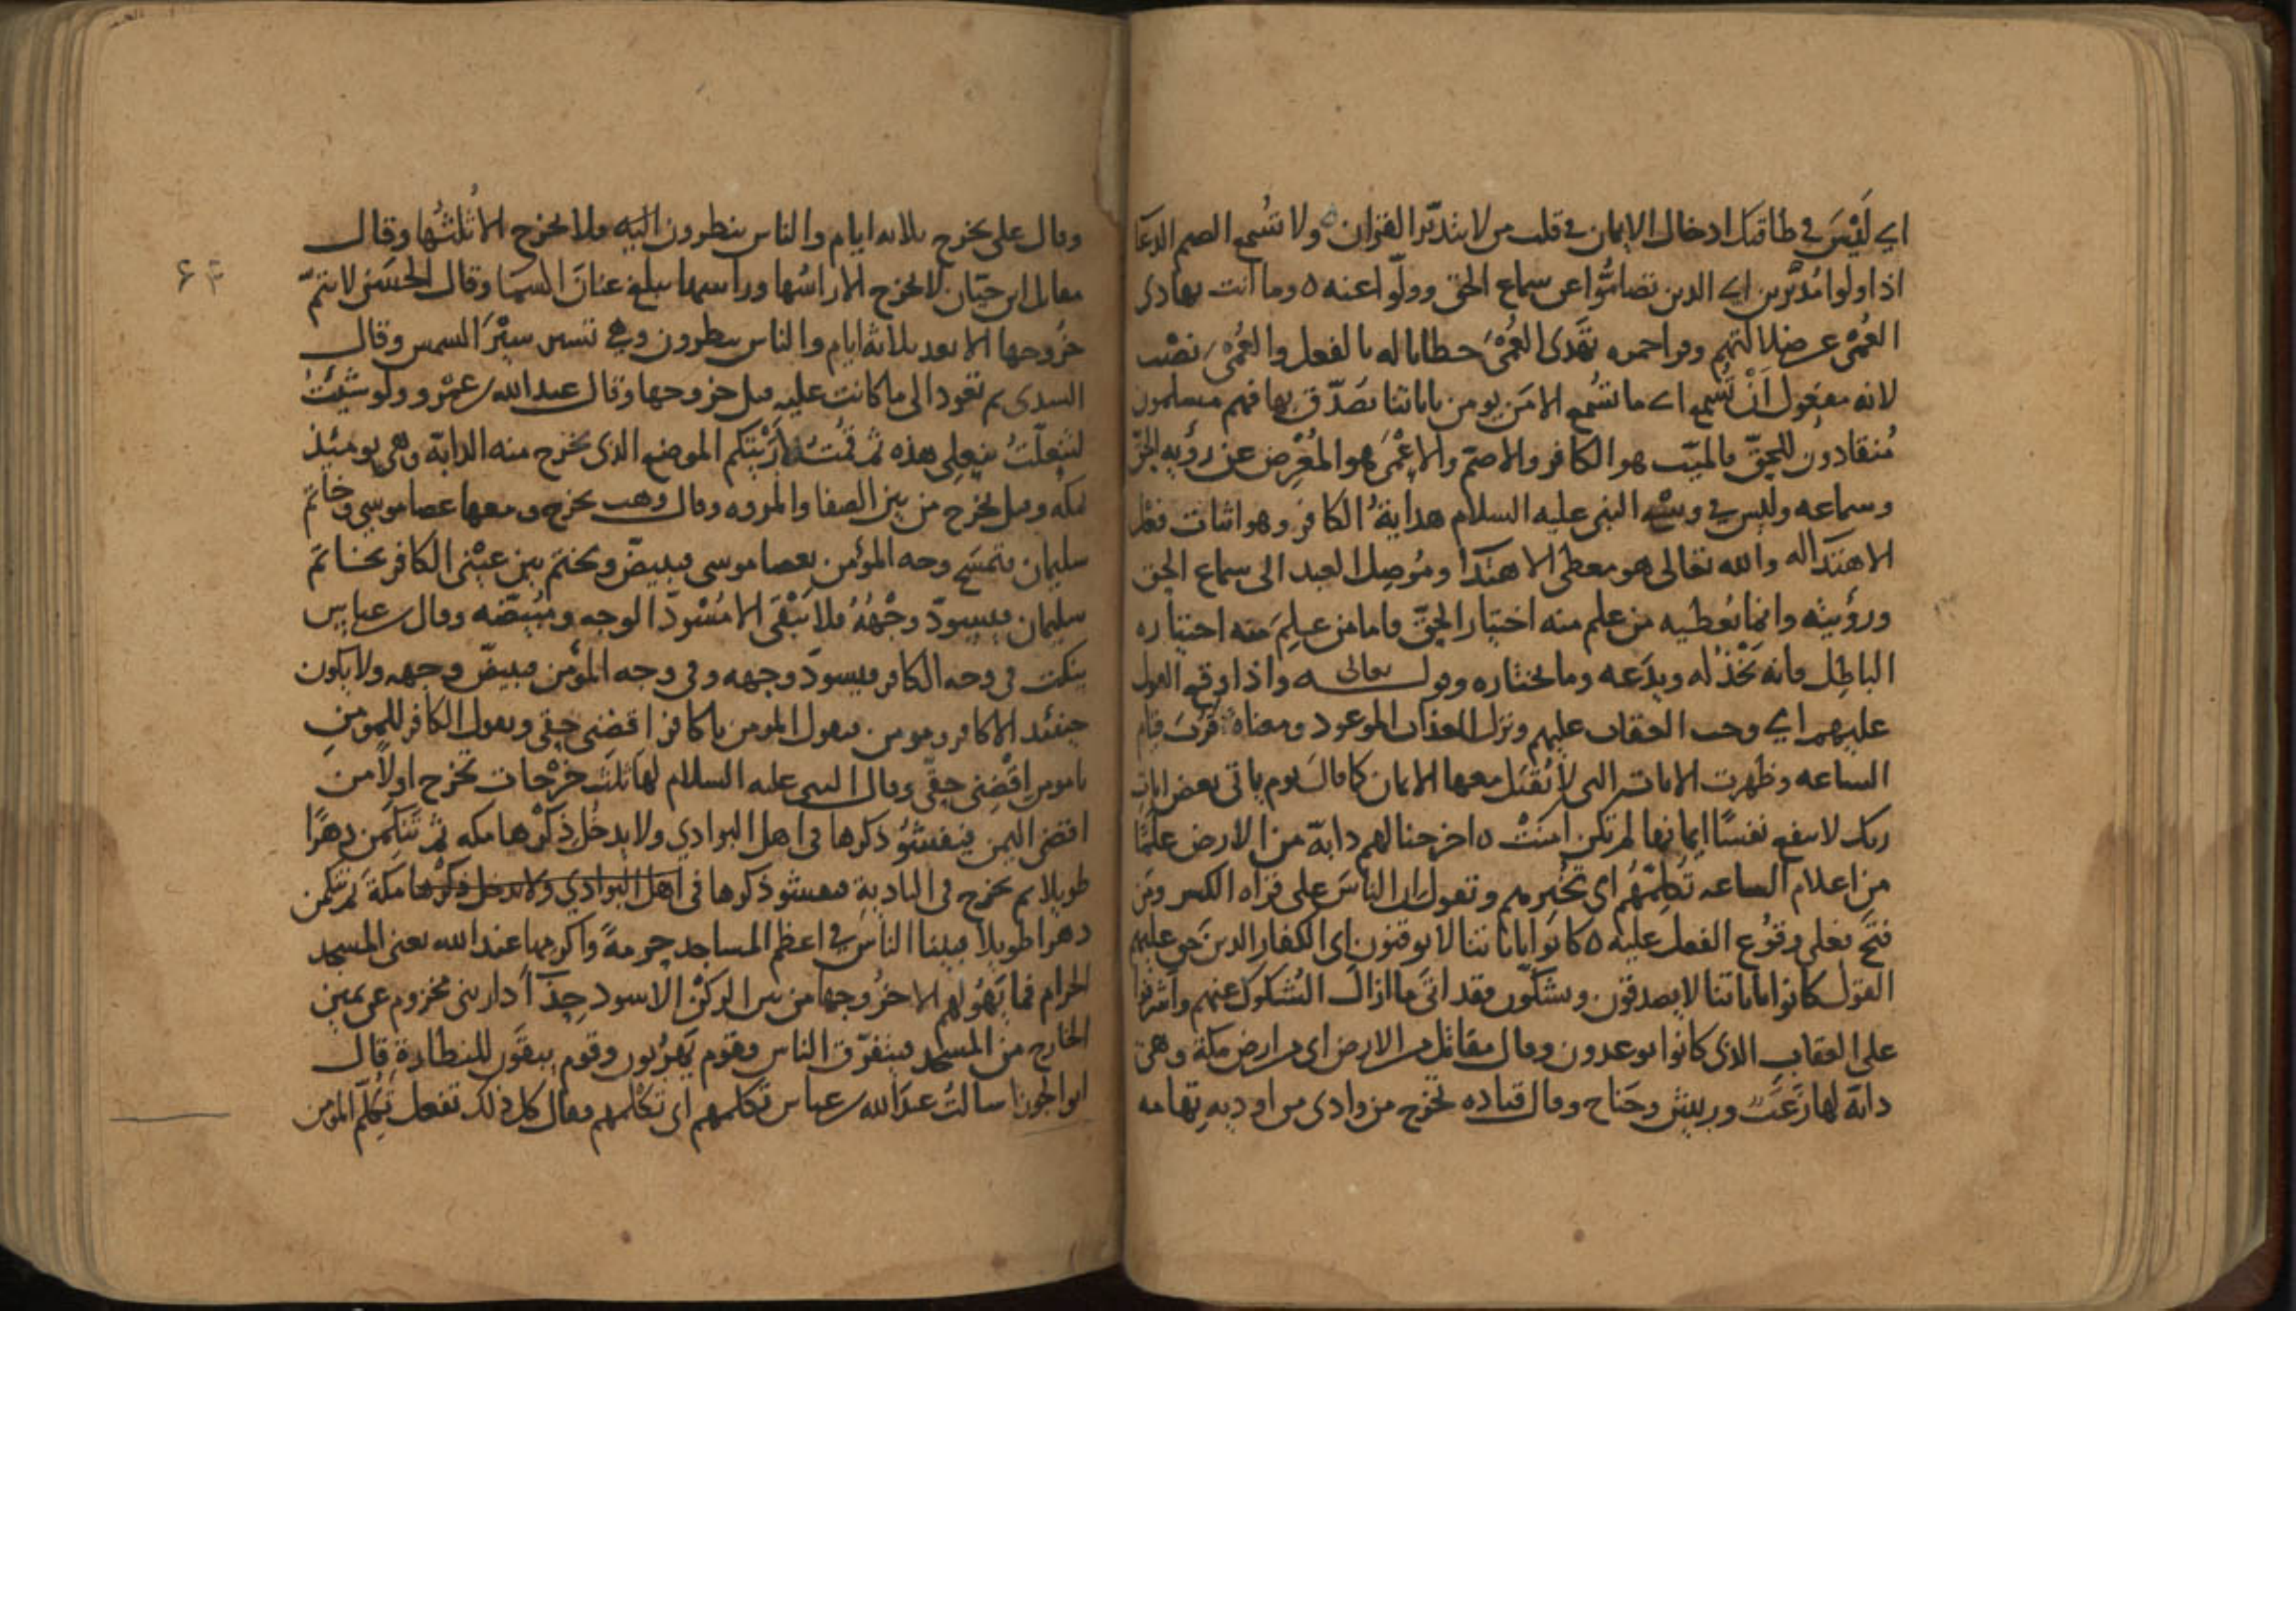 اي ليْسَ في طاقتك ادخال الايمان في قلب من لا يتدبّر القرآن ٥ ولا تُسْمع الصم الدعَآ
اذا ولوا مُدْبرين اي الذين تصامُّوا عن سماع الحق وولّوا عنه ٥ وما انت بهادى
العُمْى عن ضلالتهم وقراحمزه تَهْدى العُمْىَ خطابا له بالفعل والعُمْىَ نصْب
لانه مفعول اَنْ تُسْمع اي ما تُسْمع الا مَن يومن باياتنا يصَدّق بها فهم مسلمون
مُنقادون للحقّ فالميّت هو الكافر والاصمّ والاعْمَى هو المُعْرِض عن رؤيه الحقّ
وسماعه وليس في وسْع النبى عليه السلام هدايةُ الكافر وهو اثبات فعْل
الاهتدآ له والله تعالى هو معطى الاهتدآ ومُوصِل العبد الى سماع الحق
ورؤيته وانما يُعطيه من علم منه اختيار الحقّ فاما من علِمَ منه اختياره
الباطِل فانه يَخْذُله ويدَعه وما يختاره وقولـــه تعالى واذا وقع القول
عليهم اي وجب العقاب عليهم ونزل العذاب الموعود ومعناه قَرُبَ قيام
الساعه وظهرت الايات التى لا يُقبَل معها الايمان كما قال يوم ياتى بعض ايات
ربك لا ينفع نفسًا ايمانها لم تكن امنَتْ ٥ اخرجنا لهم دابّة من الارض علَمًا
من اعلام الساعه تُكلِّمُهُم اى تُخْبرهم وتقول ان الناسَ على قراه الكسر ومَن
فتَحَ فعلى وقوُع الفعل عليه ٥ كانوا باياتنا لا يوقنون اى الكفار الدين حق عليهم
القول كانوا باياتنا لا يصدقون ويشكّون فقد اتىَ ما ازالَ الشكوك عنهم واشرفوا
على العقاب الذى كانوا يوعدون وقال مقاتل من الارض اى من ارض مكة وهى
دابّة لها زَغَبٌ وريش وجَناح وقال قتاده تخرج من وادى من اوديه تهامه
وقال على يخرج ثلاثه ايام والناس ينظرون اليه فلا يخرج الا ثُلثُها وقال
مقاتل ابن حيّان لا يخرج الا راسُها وراسها يبلغ عنانَ السما وقال الحسَن لا يتمّ
خُروجها الا بعد ثلاثة ايام والناس ينظرون وهى تسير سيْرَ الشمس وقال
السدى ثم تعود الى ما كانت عليه قبل خروجها وقال عبد الله بن عمْرو ولو شئتُ
لتنعلّتُ بنعلى هذه ثم قُمْتُ لارَيْتكم الموضع الذى يخرج منه الدابّة وهى يومئذ
بمكه وقيل يخرج من بين الصفا والمروه وقال وهب يخرج ومعها عصا موسى وخاتَم
سليمان فتمسَح وجه المؤمن بعصا موسى فيبيضّ ويختم بين عيْنى الكافر بخاتَم
سليمان فيسودّ وجْهُهُ فلا يَبْقَى الا مُسْودّ الوجه ومُبيَضّه وقال بن عباس
ينكت فى وجه الكافر فيسودّ وجهه وفى وجه المؤمن فيبيضّ وجهه ولا يكون
حينئذ الا كافر ومومن فيقول المومن يا كافر اقضِنى حِقى ويقول الكافر للمومن
يا مومن اقْضِنى حِقّى وقال النبى عليه السلام لها ثلث خرْجات تخرج اولاً من
اقصى اليمن فيفشُوُ ذكرها فى اهل البوادي ولا يدخُل ذكْرها مكه ثم تَتَكمن دهرًا
طويلا ثم يخرج فى البادية فيفشو ذكرها فى اهل البوادي ولا يدخل ذكرها مكّة ثم تتكمن
دهرا طويلاً فبينا الناس في اعظم المساجد حرمةً واكرمها عند الله يعنى المسجد
الحرام فما يَهُولهم الا خرُوجها من بين الركْن الاسود حِذآ دار بنى مخزوم عن يمين
الخارج من المسجد فيتفرّق الناس فقوم يَهرُبون وقوم يبقَون للنظارة قال
ابو الجوزا سالتُ عبدَ الله بن عباس تكلمهم اى تكْلمهم فقال كل ذلك تفعل تُكلّم المومن